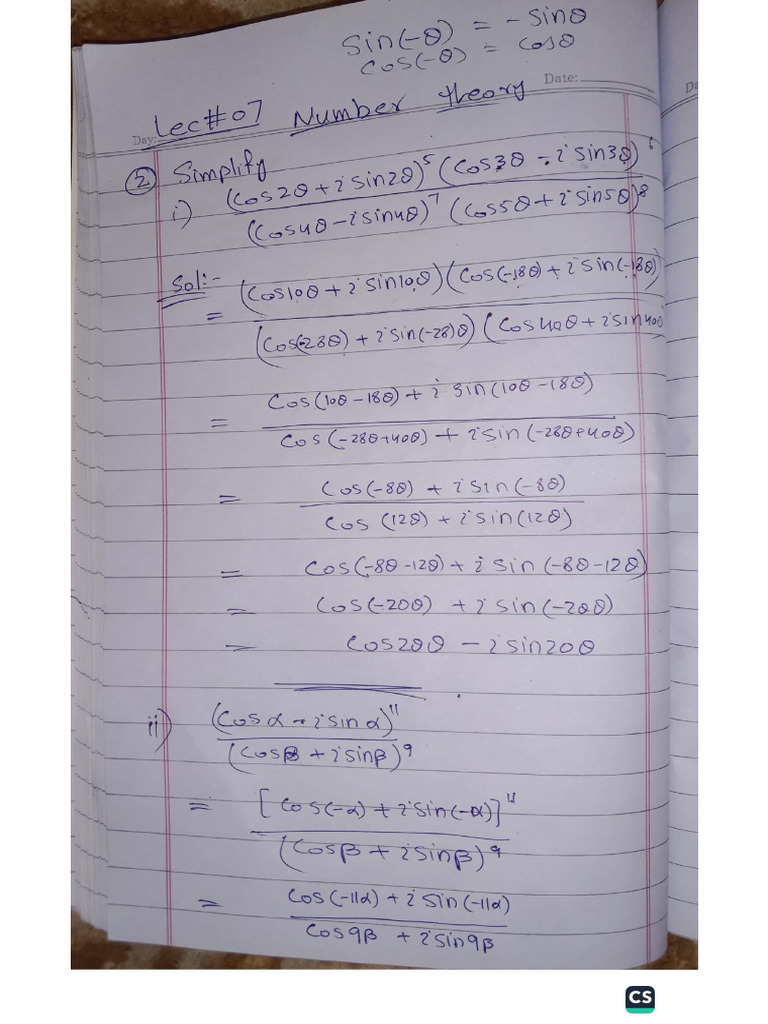 sin(-θ) = -sinθ
cos(-θ) = cosθ
Date:
Day:
Lec#07 Number theory
② Simplify
i) (cos2θ + i sin2θ)⁵ (cos3θ - i sin3θ)⁶
(cos4θ - i sin4θ)⁷ (cos5θ + i sin5θ)⁸
Sol:-
= (cos10θ + i sin10θ) (cos(-18θ) + i sin(-18θ)
(cos(-28θ) + i sin(-28)θ) (cos40θ + i sin40θ
= cos(10θ - 18θ) + i sin(10θ - 18θ)
cos(-28θ+40θ) + i sin(-28θ+40θ)
= cos(-8θ) + i sin(-8θ)
cos(12θ) + i sin(12θ)
= cos(-8θ-12θ) + i sin(-8θ-12θ)
= cos(-20θ) + i sin(-20θ)
= cos20θ - i sin20θ
ii) (cosα - i sinα)¹¹
(cosβ + i sinβ)⁹
= [cos(-α) + i sin(-α)]¹¹
(cosβ + i sinβ)⁹
= cos(-11α) + i sin(-11α)
cos9β + i sin9β
CS